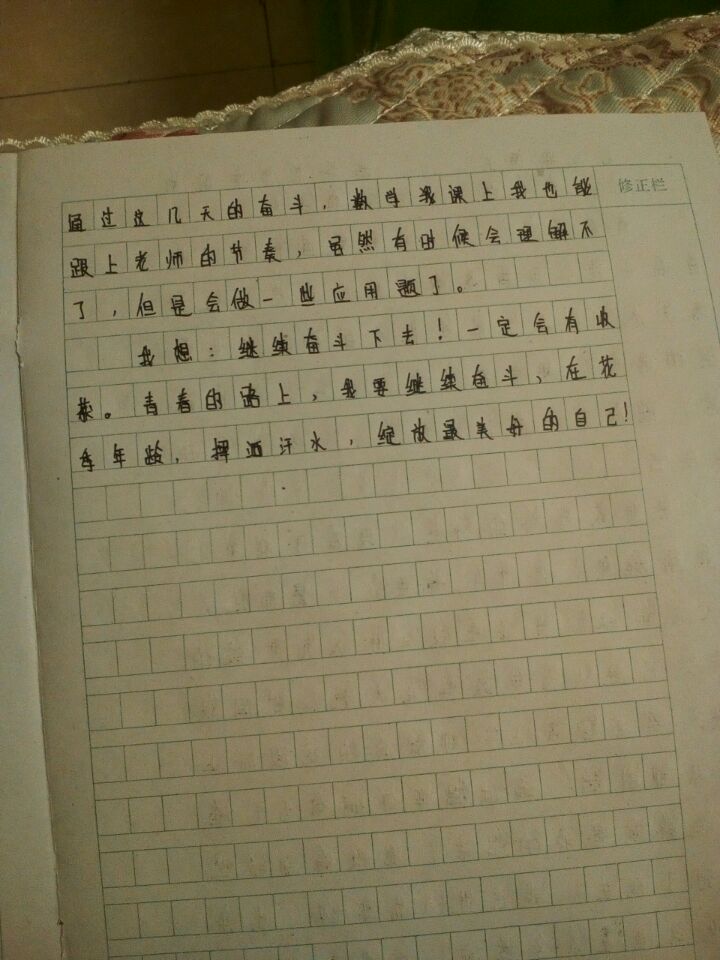 修正栏
通过这几天的奋斗，数学我课上我也能
跟上老师的节奏，虽然有时候会理解不
了，但是会做一些应用题了。
我想：继续奋斗下去！一定会有收
获。青春的路上，我要继续奋斗，在花
季年龄，挥洒汗水，绽放最美好的自己！